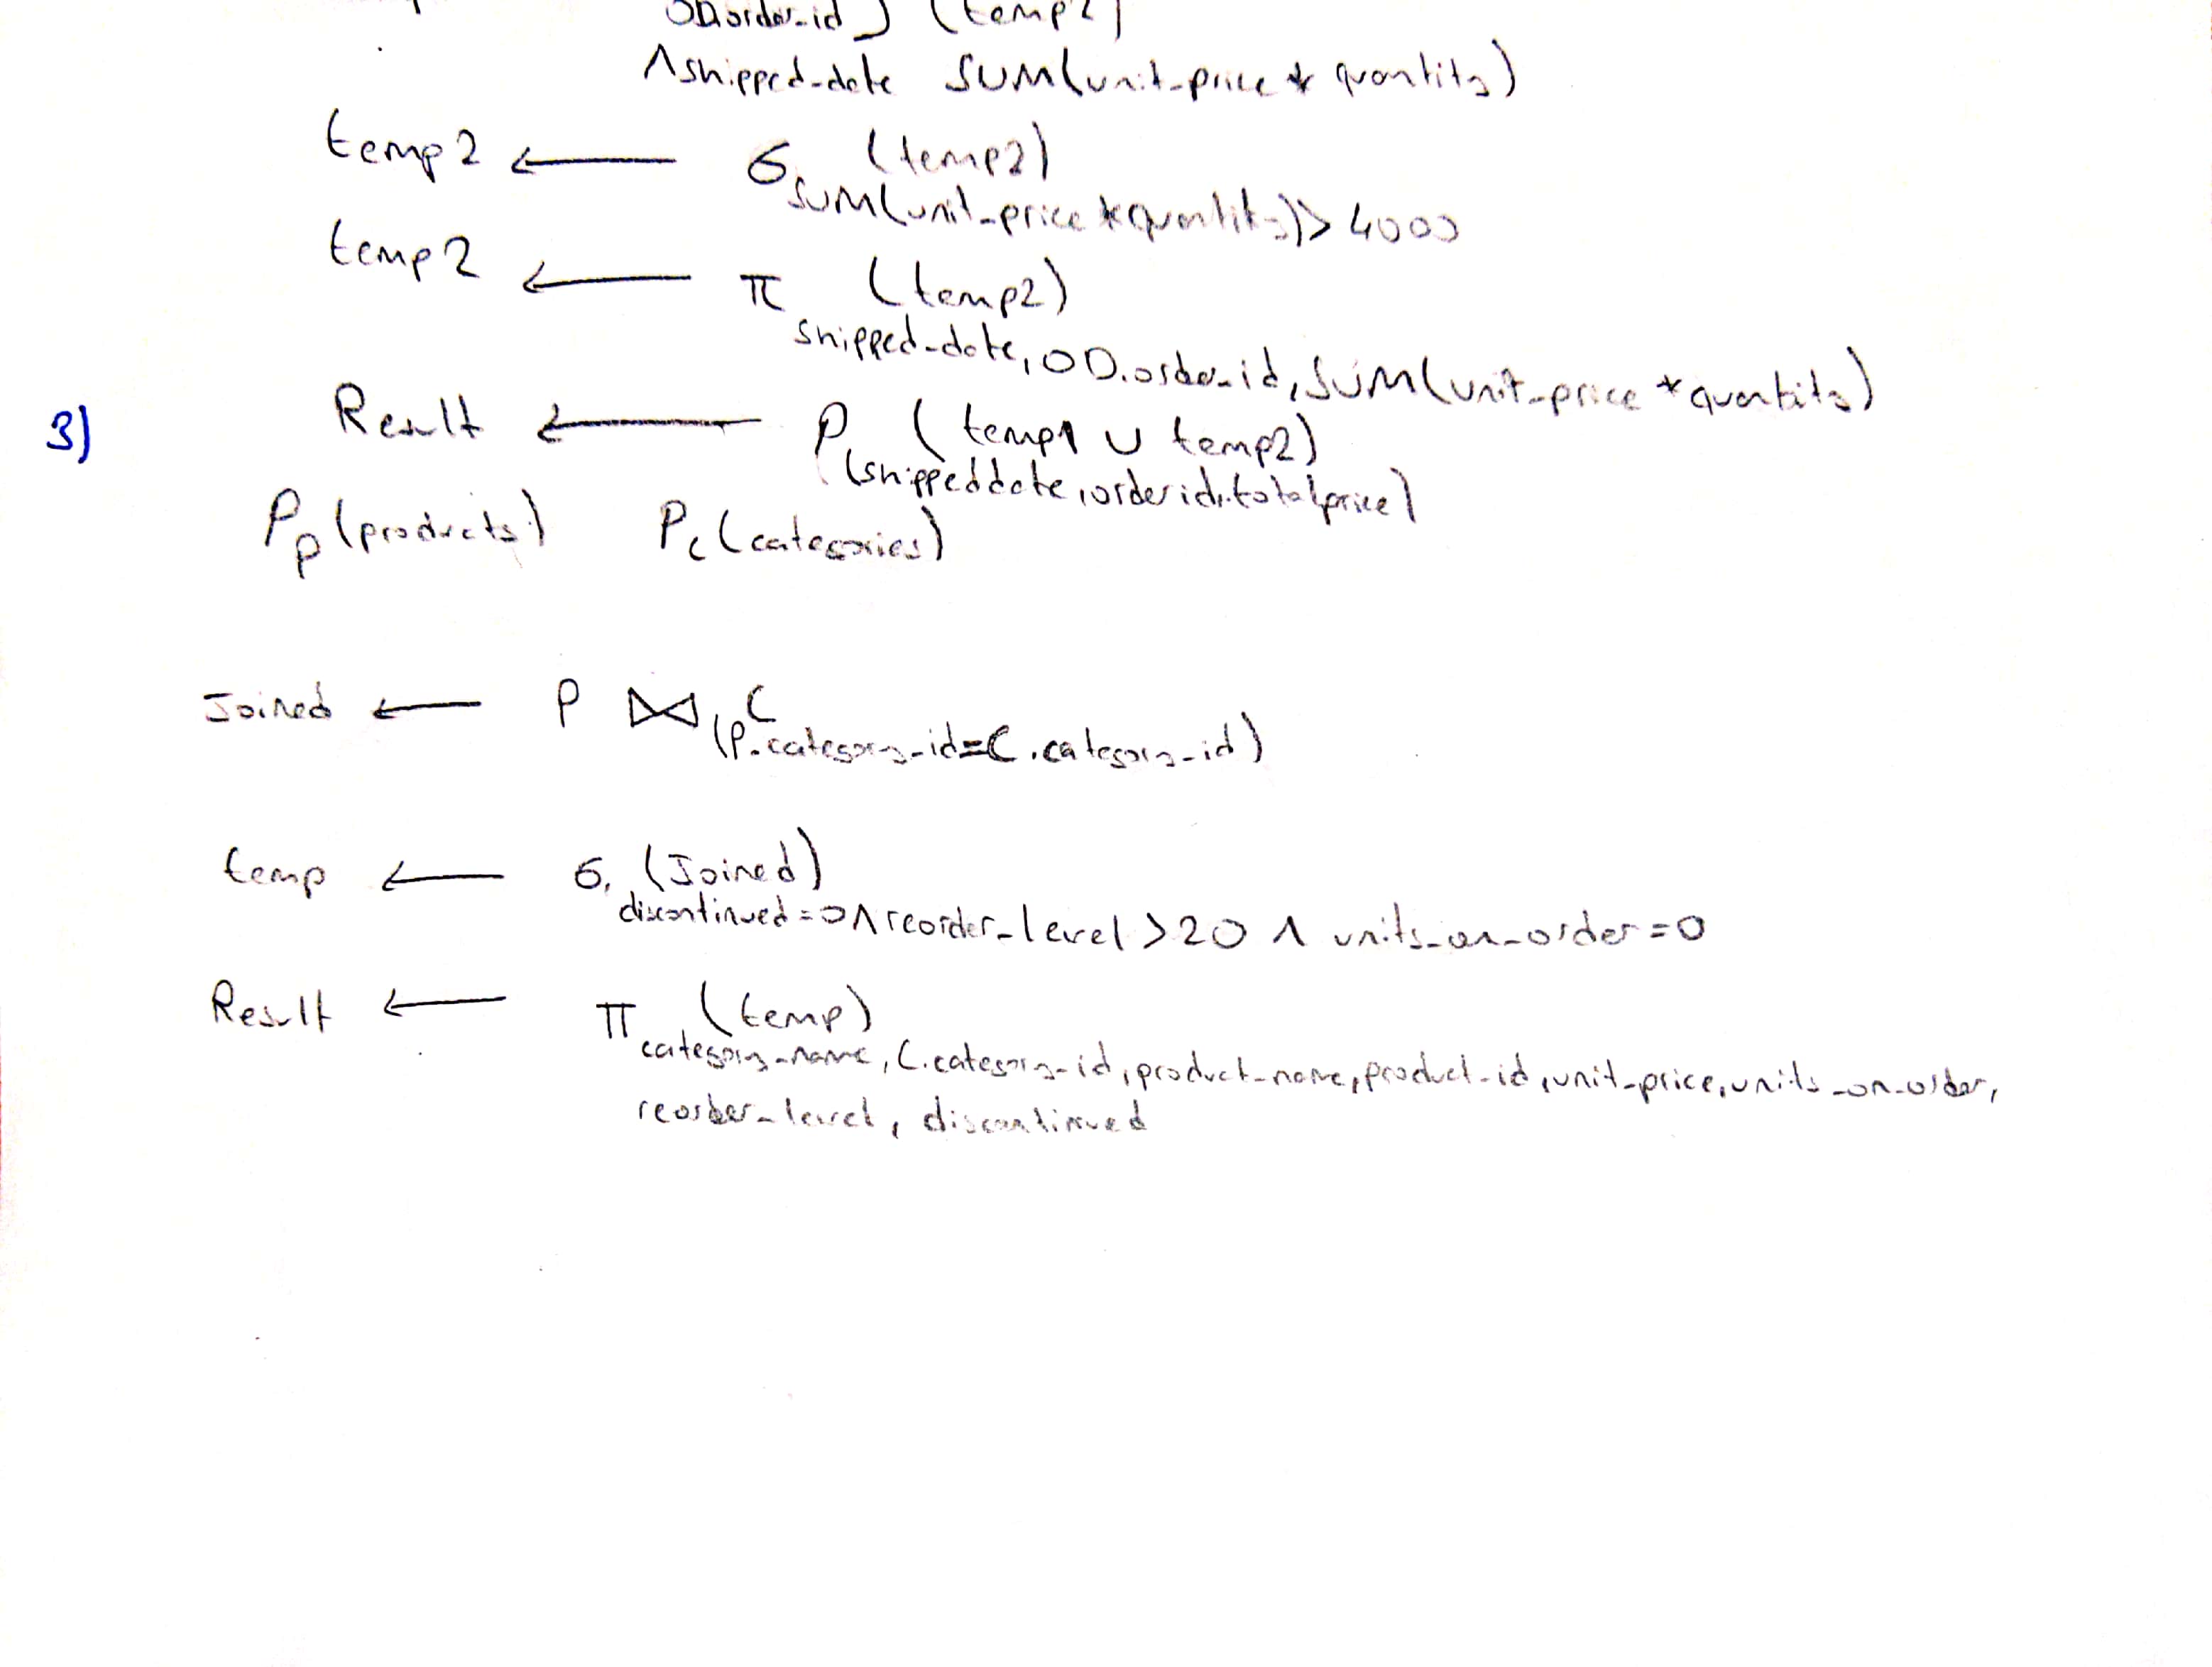 OD.order_id) (temp2)
∧shipped_date SUM(unit_price * quantity)
temp2 ← σ (temp2)
SUM(unit_price * quantity)>4000
temp2 ← π (temp2)
shipped_date, OD.order_id, SUM(unit_price * quantity)
3) Result ← ρ (temp1 ∪ temp2)
(shippeddate, orderid, totalprice)
ρp (products) ρc (categories)
Joined ← P ⋈ C
(P.category_id=C.category_id)
temp ← σ (Joined)
discontinued=0 ∧ reorder_level >20 ∧ units_on_order=0
Result ← π (temp)
category_name, C.category_id, product_name, product_id, unit_price, units_on_order,
reorder_level, discontinued